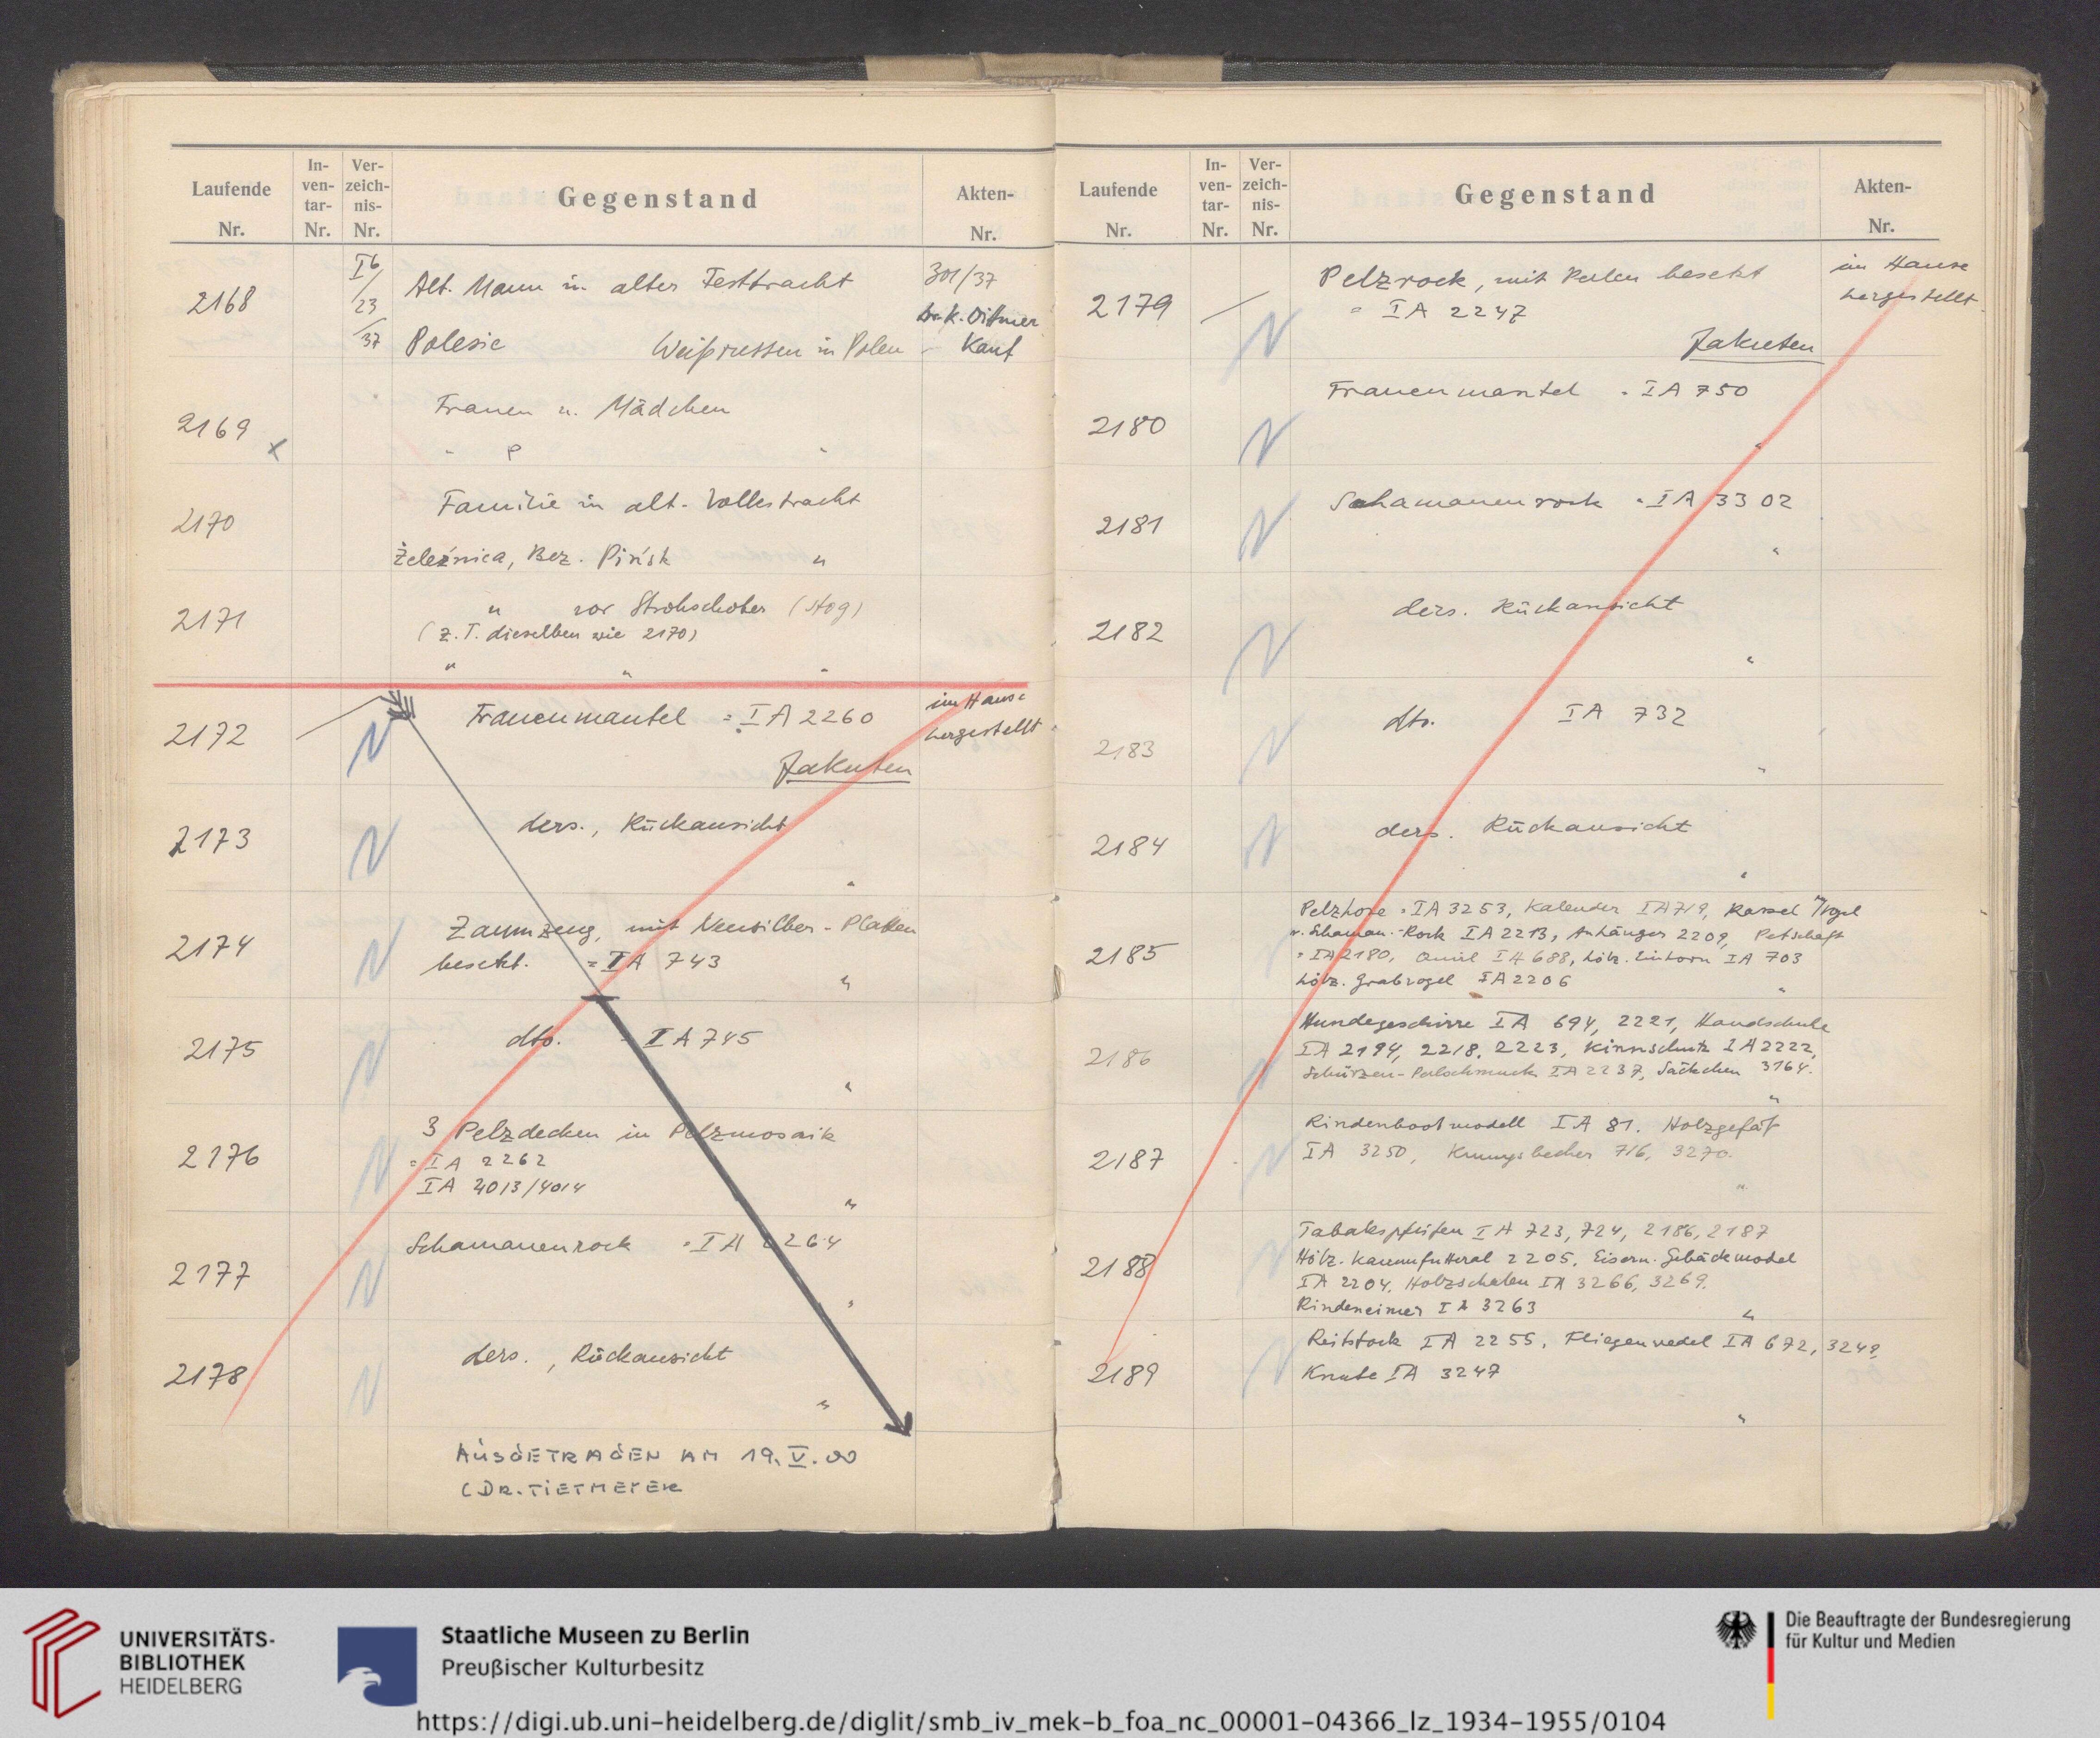 Laufende Nr. In-ven-tar-Nr. Ver-zeich-nis-Nr. Gegenstand Akten-Nr.
2168 Ib/23/37 Alt. Mann in alter Festtracht 301/37
Dr. K. Dittmer
Polesie Weißrussen in Polen - Kauf
2169 x Frauen u. Mädchen
" P "
2170 Familie in alt. Volkstracht
Żeleźnica, Bez. Pińsk "
2171 " vor Strohschober (Stog)
(z.T. dieselben wie 2170)
" " "
2172 Frauenmantel = IA 2260 im Hause hergestellt
Jakuten
2173 ders., Rückansicht
"
2174 Zaumzeug, mit Neusilber-Platten
besetzt. = IA 743 "
2175 dto. = IA 745
"
2176 3 Pelzdecken in Pelzmosaik
= IA 2262
IA 4013/4014 "
2177 Schamanenrock = IA 2264
"
2178 ders., Rückansicht
"
AUSGETRAGEN AM 19.V.00
(DR. TIETMEYER
Laufende Nr. In-ven-tar-Nr. Ver-zeich-nis-Nr. Gegenstand Akten-Nr.
2179 Pelzrock, mit Perlen besetzt im Hause hergestellt
= IA 2247
Jakuten
2180 Frauenmantel = IA 750
"
2181 Schamanenrock = IA 3302
"
2182 ders. Rückansicht
"
2183 dto. IA 732
"
2184 ders. Rückansicht
"
2185 Pelzhose = IA 3253, Kalender IA 719, Vogel
v. Schaman.-Rock IA 2213, Anhänger 2209, Petschaft
= IA 2180, IA 688, hölz. Einhorn IA 703
hölz. Grabvogel IA 2206 "
2186 Hundegeschirre IA 694, 2221, Handschuhe
IA 2194, 2218, 2223, Kinnschutz IA 2222,
Schürzen-Perlschmuck IA 2237, Säckchen 3164.
"
2187 Rindenbootmodell IA 81. Holzgefäß
IA 3250, Kumysbecher 716, 3270.
"
2188 Tabakspfeifen IA 723, 724, 2186, 2187
Hölz. Kammfutteral 2205, Eisern. Gebäckmodel
IA 2204, Holzschalen IA 3266, 3269.
Rindeneimer IA 3263 "
2189 Reitstock IA 2255, Fliegenwedel IA 672, 3249,
Knute IA 3247
"
UNIVERSITÄTS-
BIBLIOTHEK
HEIDELBERG
Staatliche Museen zu Berlin
Preußischer Kulturbesitz
Die Beauftragte der Bundesregierung
für Kultur und Medien
https://digi.ub.uni-heidelberg.de/diglit/smb_iv_mek-b_foa_nc_00001-04366_lz_1934-1955/0104